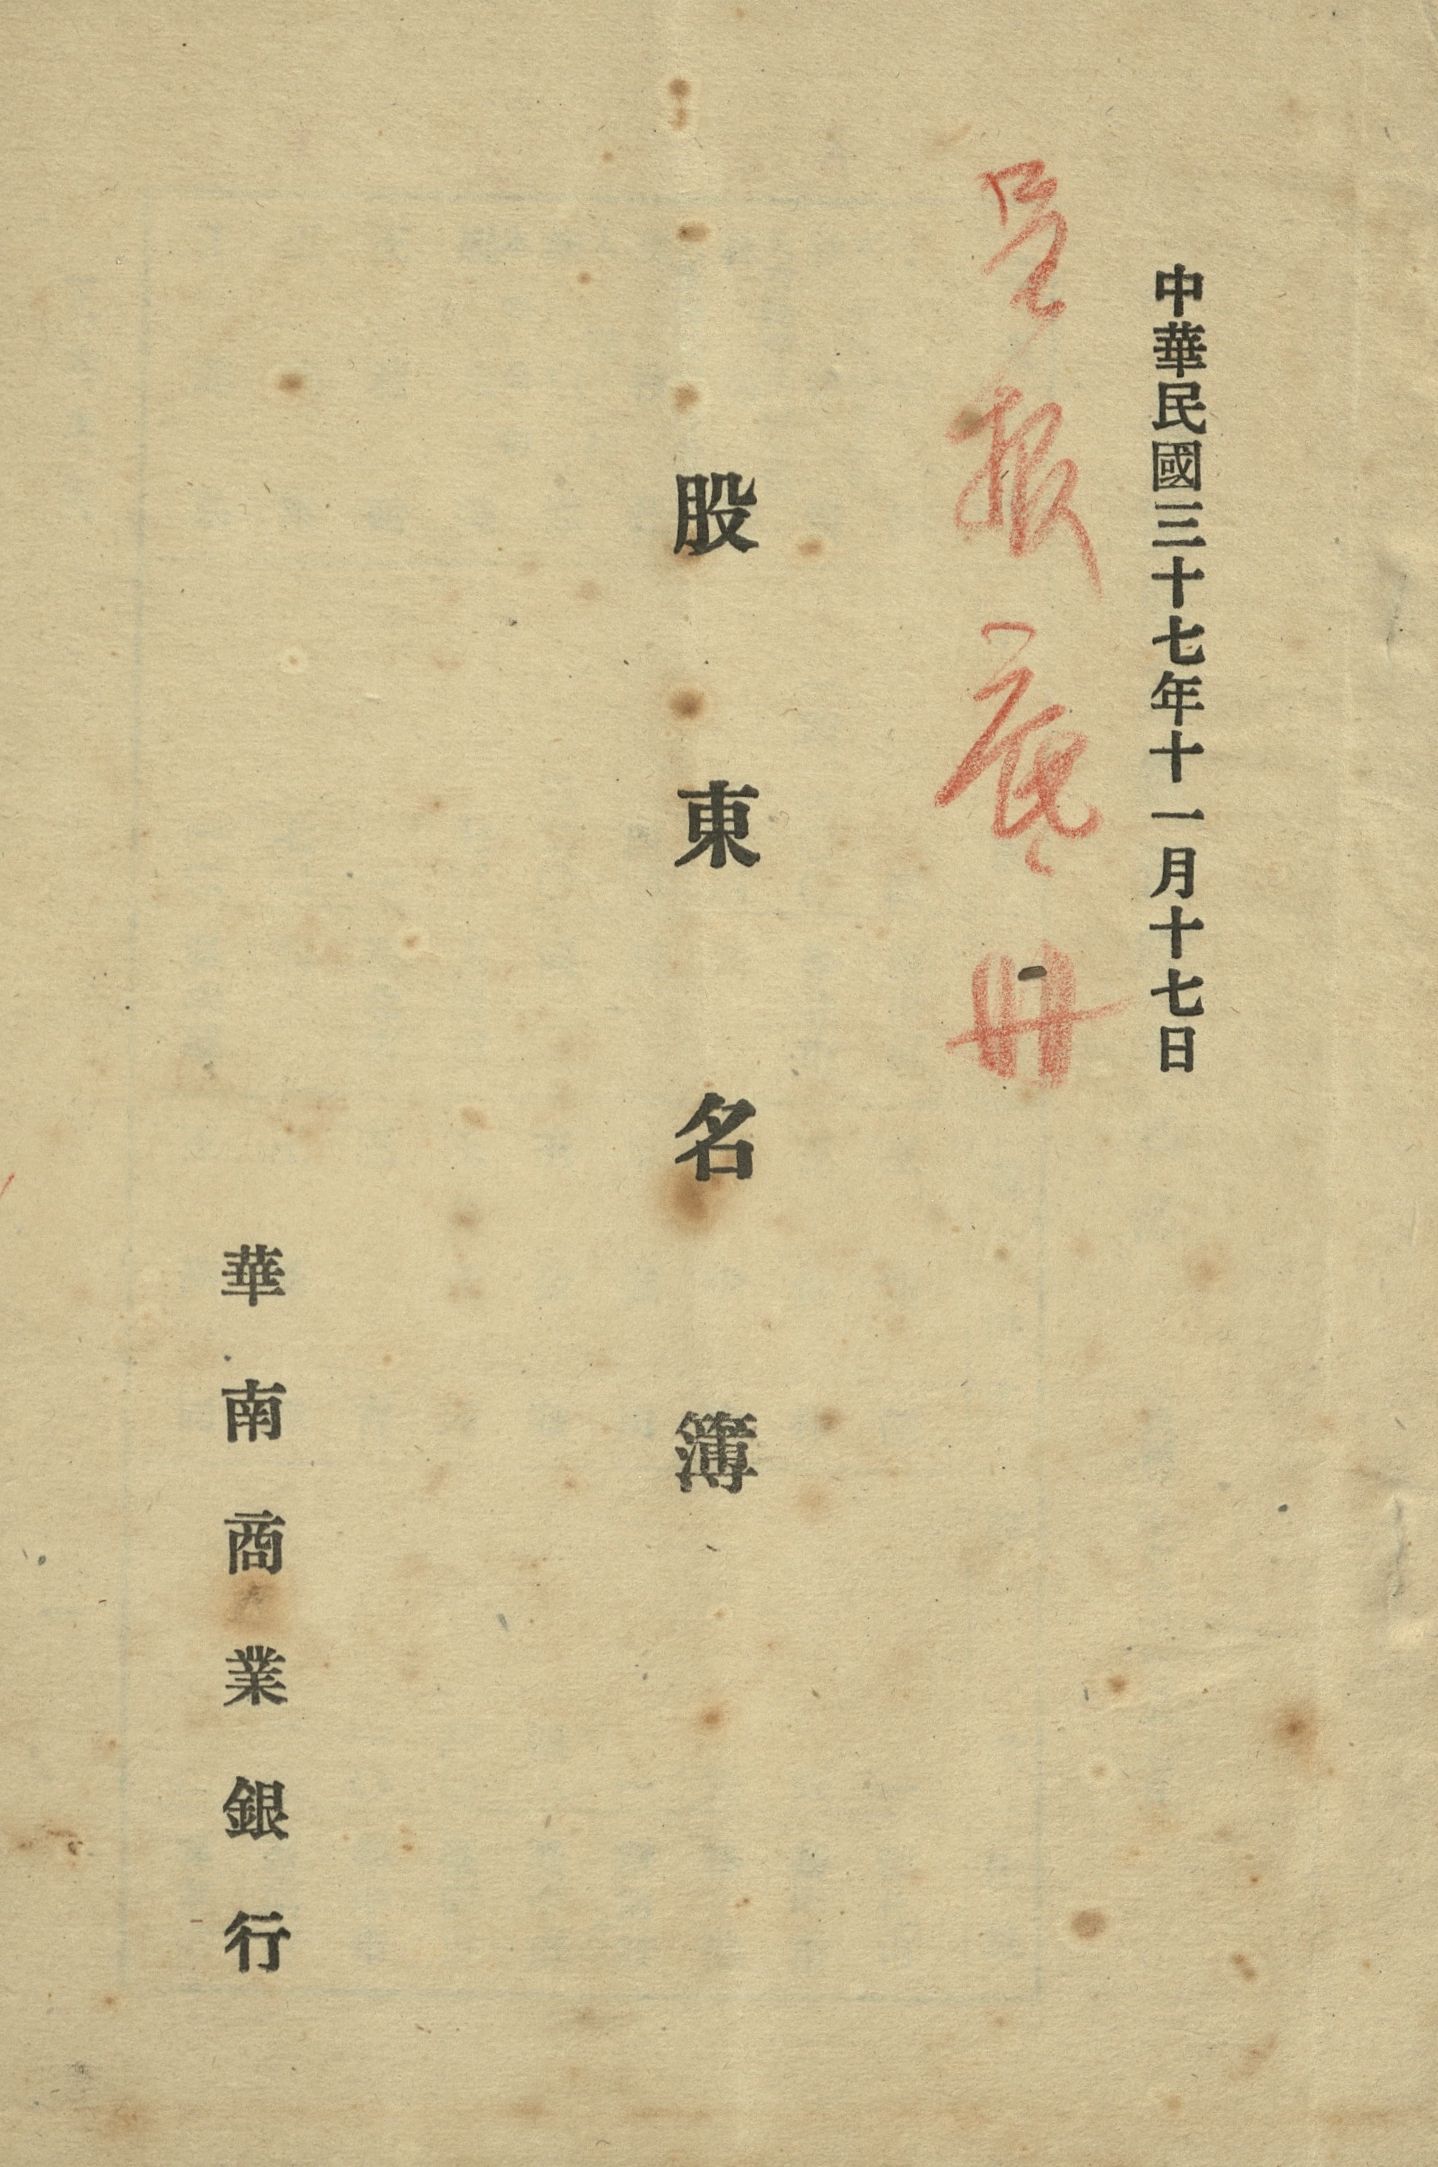 中華民國三十七年十一月十七日
呈報底冊
股東名簿
華南商業銀行